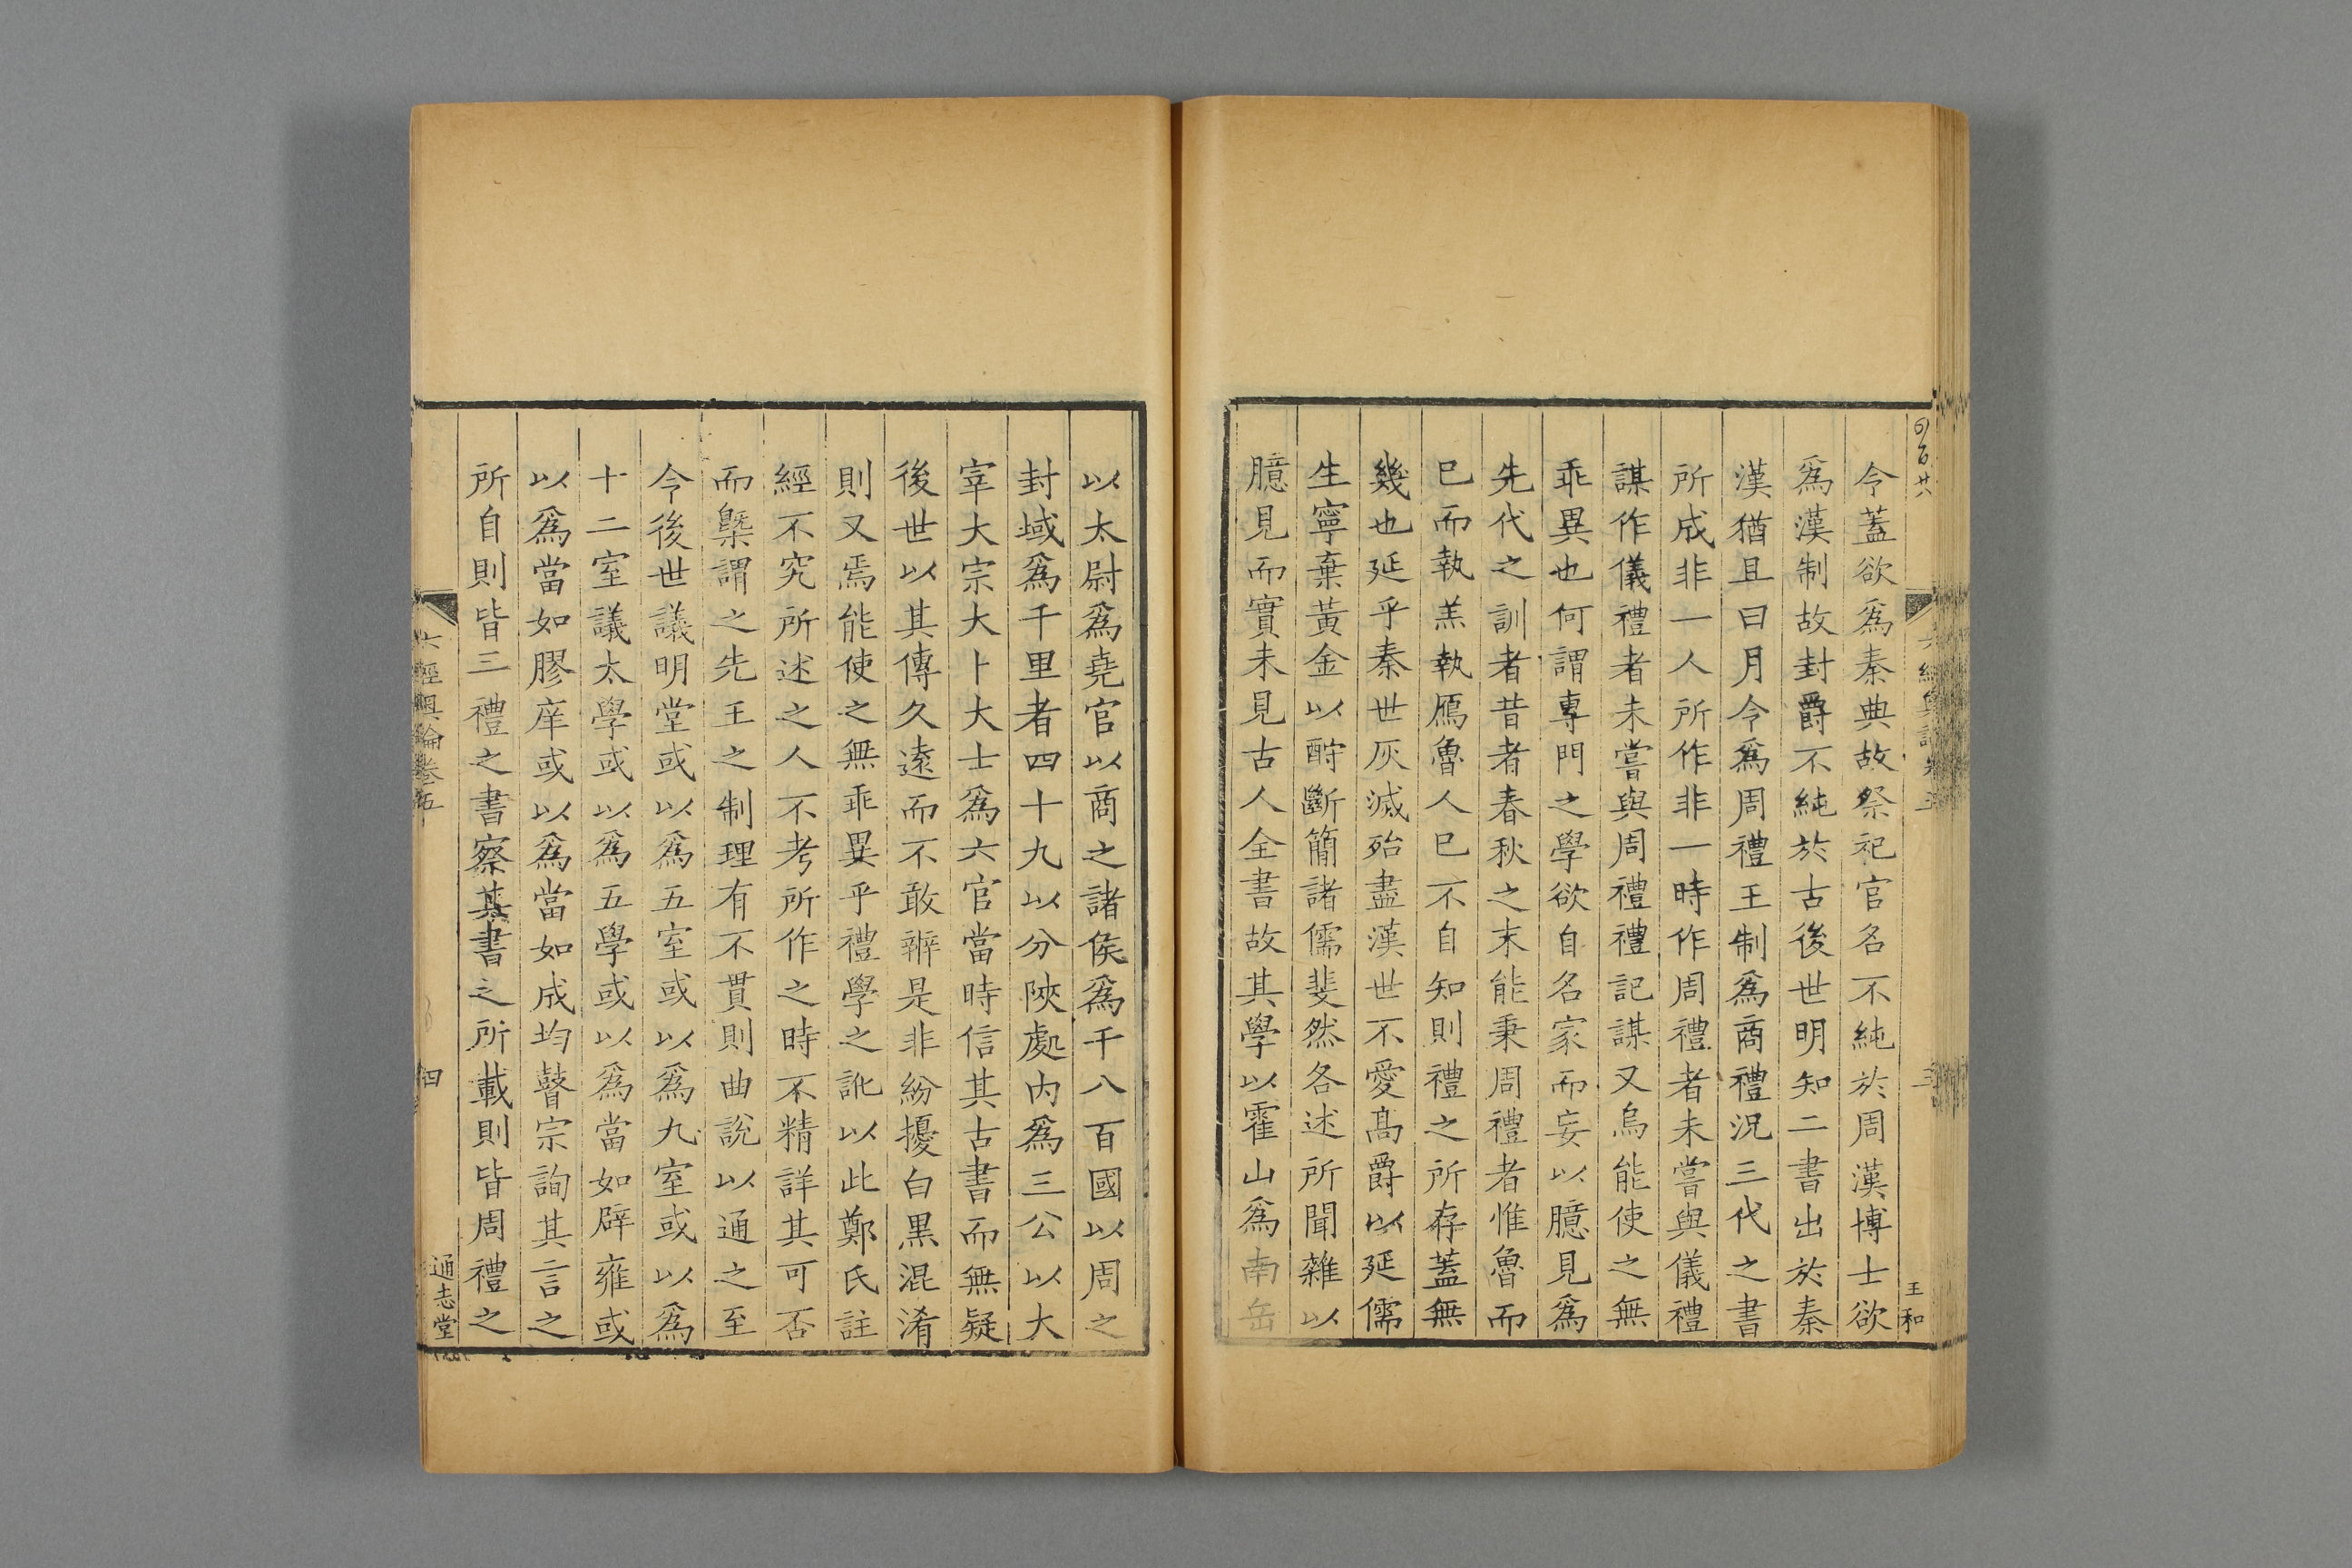 令蓋欲爲秦典故祭祀官名不純於周漢博士欲
爲漢制故封爵不純於古後世明知二書出於秦
漢猶且曰月令爲周禮王制爲商禮況三代之書
所成非一人所作非一時作周禮者未嘗與儀禮
謀作儀禮者未嘗與周禮禮記謀又烏能使之無
乖異也何謂專門之學欲自名家而妄以臆見爲
先代之訓者昔者春秋之末能秉周禮者惟魯而
巳而執羔執鴈魯人巳不自知則禮之所存蓋無
幾也延乎秦世灰滅殆盡漢世不愛髙爵以延儒
生寧棄黃金以酧斷簡諸儒斐然各述所聞雜以
臆見而實未見古人全書故其學以霍山爲南岳
王和
以太尉爲堯官以商之諸侯爲千八百國以周之
封域爲千里者四十九以分陜處内爲三公以大
宰大宗大卜大士爲六官當時信其古書而無疑
後世以其傳久遠而不敢辨是非紛擾白黒混淆
則又焉能使之無乖異乎禮學之訛以此鄭氏註
經不究所述之人不考所作之時不精詳其可否
而槩謂之先王之制理有不貫則曲說以通之至
令後世議明堂或以爲五室或以爲九室或以爲
十二室議太學或以爲五學或以爲當如辟雍或
以爲當如膠庠或以爲當如成均瞽宗詢其言之
所自則皆三禮之書察其書之所載則皆周禮之
六經奧論卷五
四
通志堂